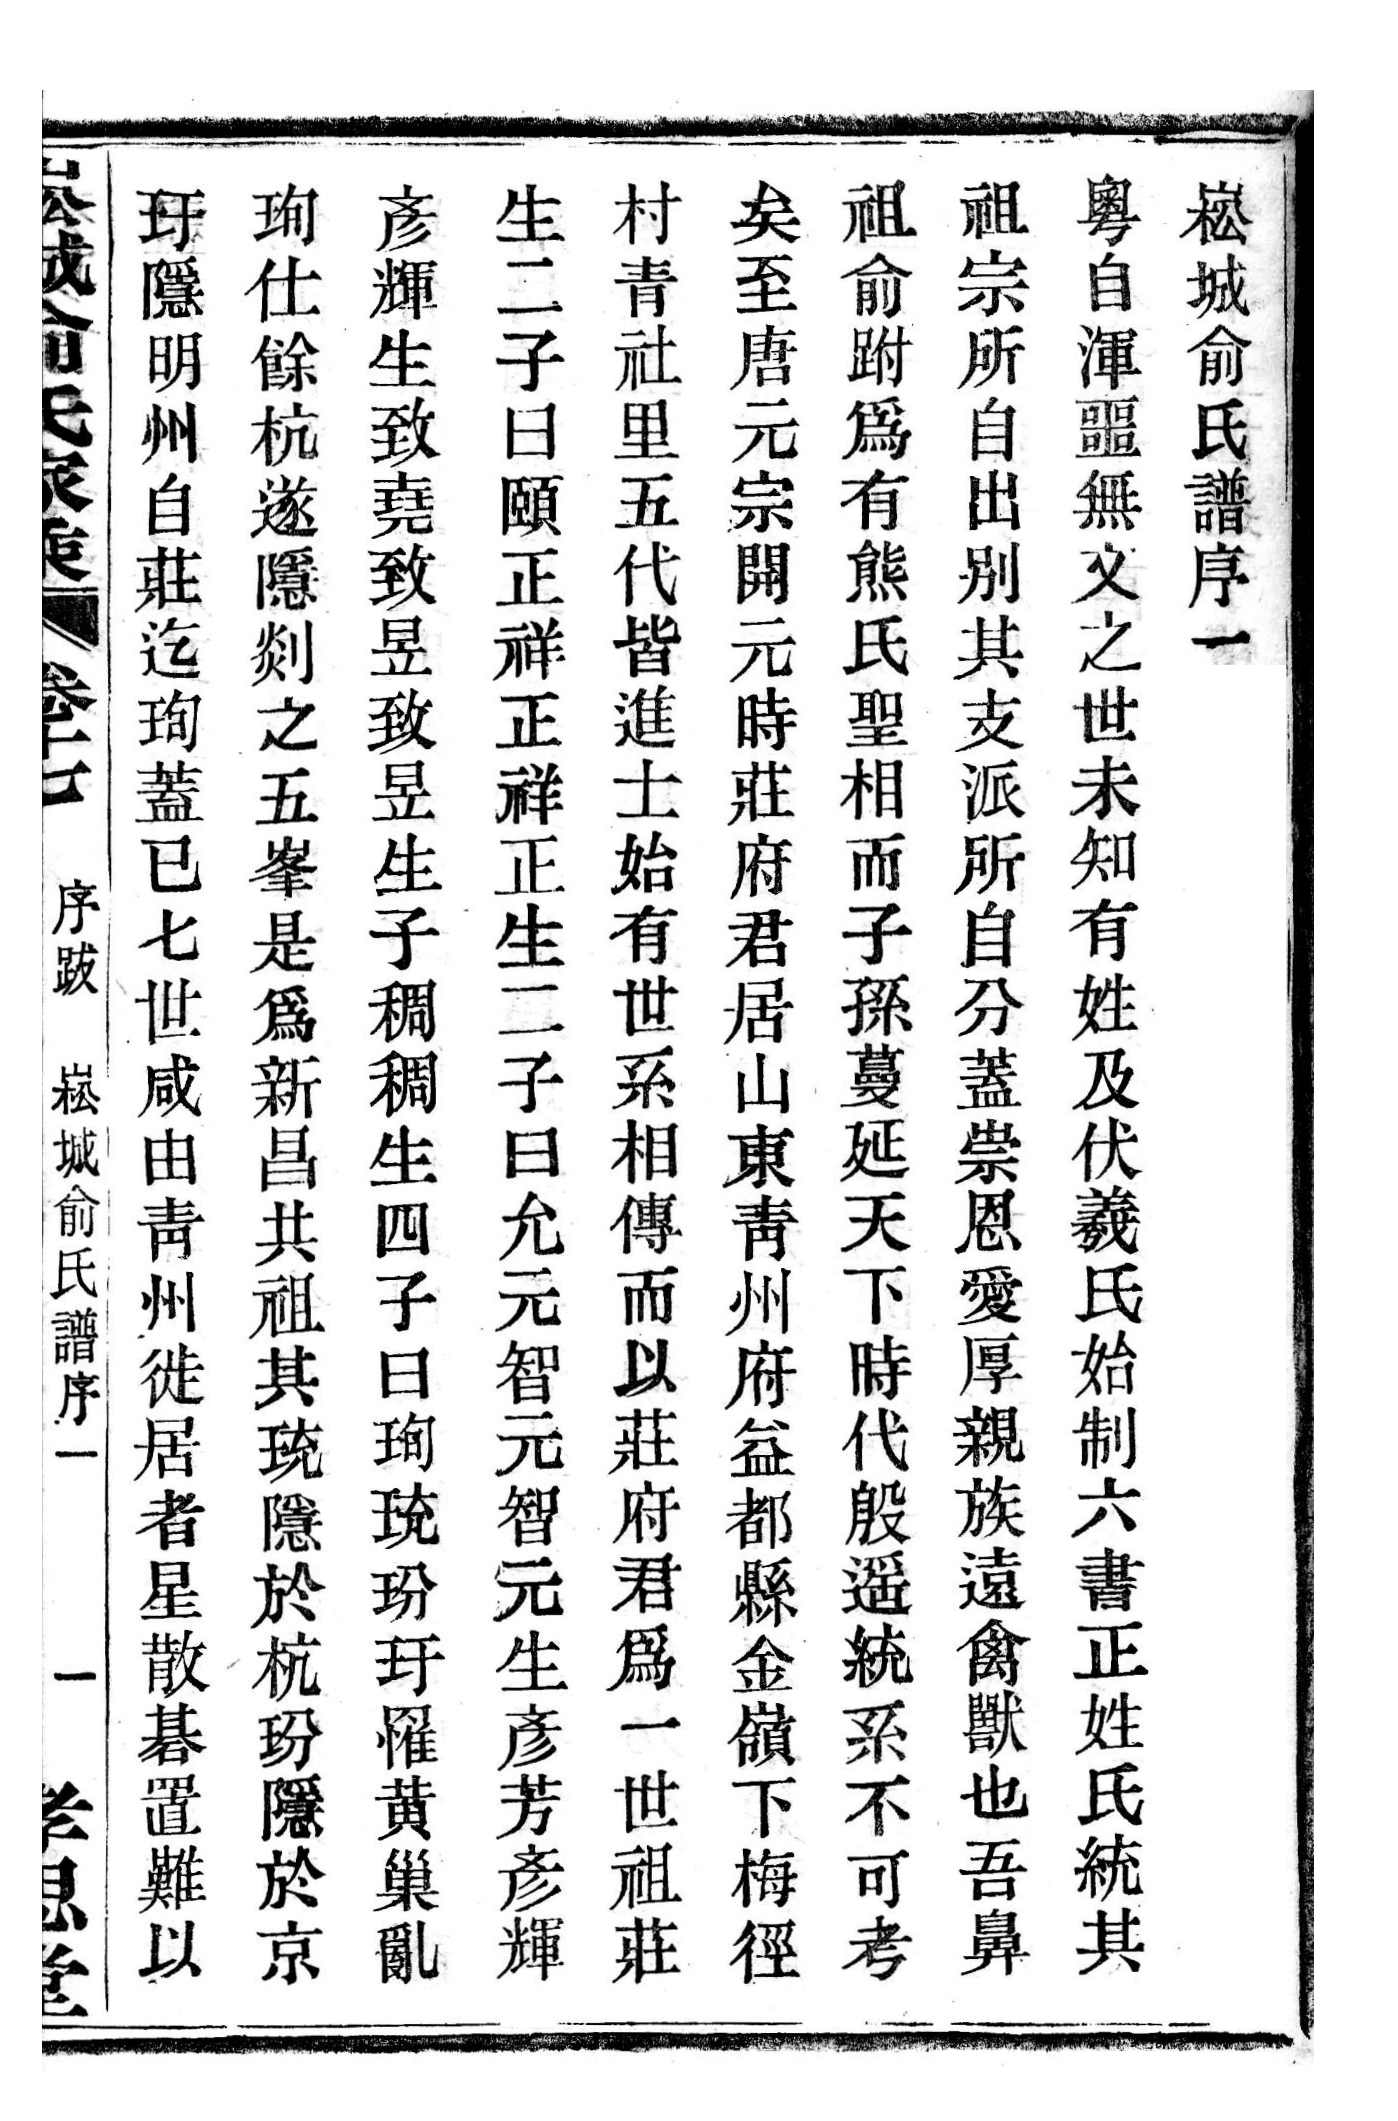 崧城俞氏譜序一
粵自渾噩無文之世未知有姓及伏羲氏始制六書正姓氏統其
祖宗所自出別其支派所自分蓋崇恩愛厚親族遠禽獸也吾鼻
祖俞跗爲有熊氏聖相而子孫蔓延天下時代殷遥統系不可考
矣至唐元宗開元時莊府君居山東青州府益都縣金嶺下梅徑
村青社里五代皆進士始有世系相傳而以莊府君爲一世祖莊
生二子曰頤正祥正祥正生二子曰允元智元智元生彥芳彥輝
彥輝生致堯致昱致昱生子稠稠生四子曰珣珫玢玗罹黄巢亂
珣仕餘杭遂隱剡之五峯是爲新昌共祖其珫隱於杭玢隱於京
玗隱明州自莊迄珣蓋已七世咸由青州徙居者星散碁置難以
崧城俞氏家乘 卷十七 序跋 崧城俞氏譜序一 一 孝思堂